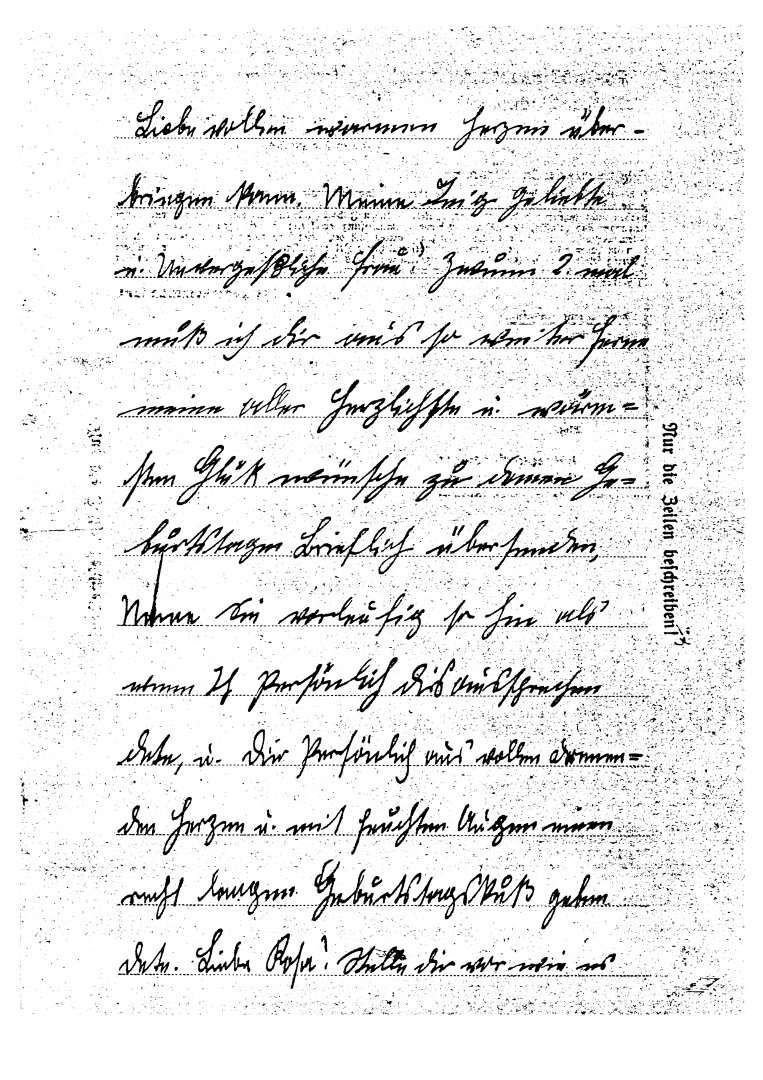 Liebe vollen warmen Herzen über-
bringen kann. Meine Inig geliebte
u. Unvergeßliche Frau! Zwumm 2. mal
muß ich dir aus so weiter Ferne
meine aller Herzlichste u. wärm=
sten Glük wünsche zu deinen Ge=
burtstagen Brieflich übersenden,
Neme Sie vorleufig so hin als
wenn Ich Persönlich dir aussprechen
dete, u. Dir Persönlich aus vollen
den Herzen u. mit feuchten Augen einen
recht langen Geburtstagskuß geben
dete. Liebe Rosa! Stelle dir vor wie es
Nur die Zeilen beschreiben!